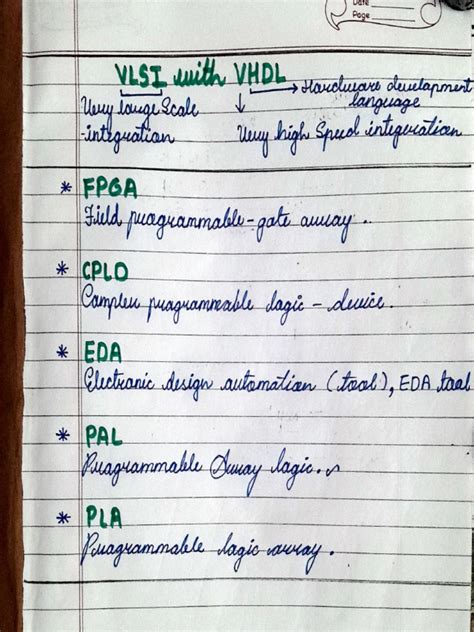 Date
Page
VLSI with VHDL
Hardware development
language
Very large Scale
-integration
Very high Speed integeration
* FPGA
Field programmable-gate array.
* CPLD
Complex programmeable logic - device.
* EDA
Electronic design automation (tool), EDA tool
* PAL
Programmable Array logic.
* PLA
Programmable logic array.